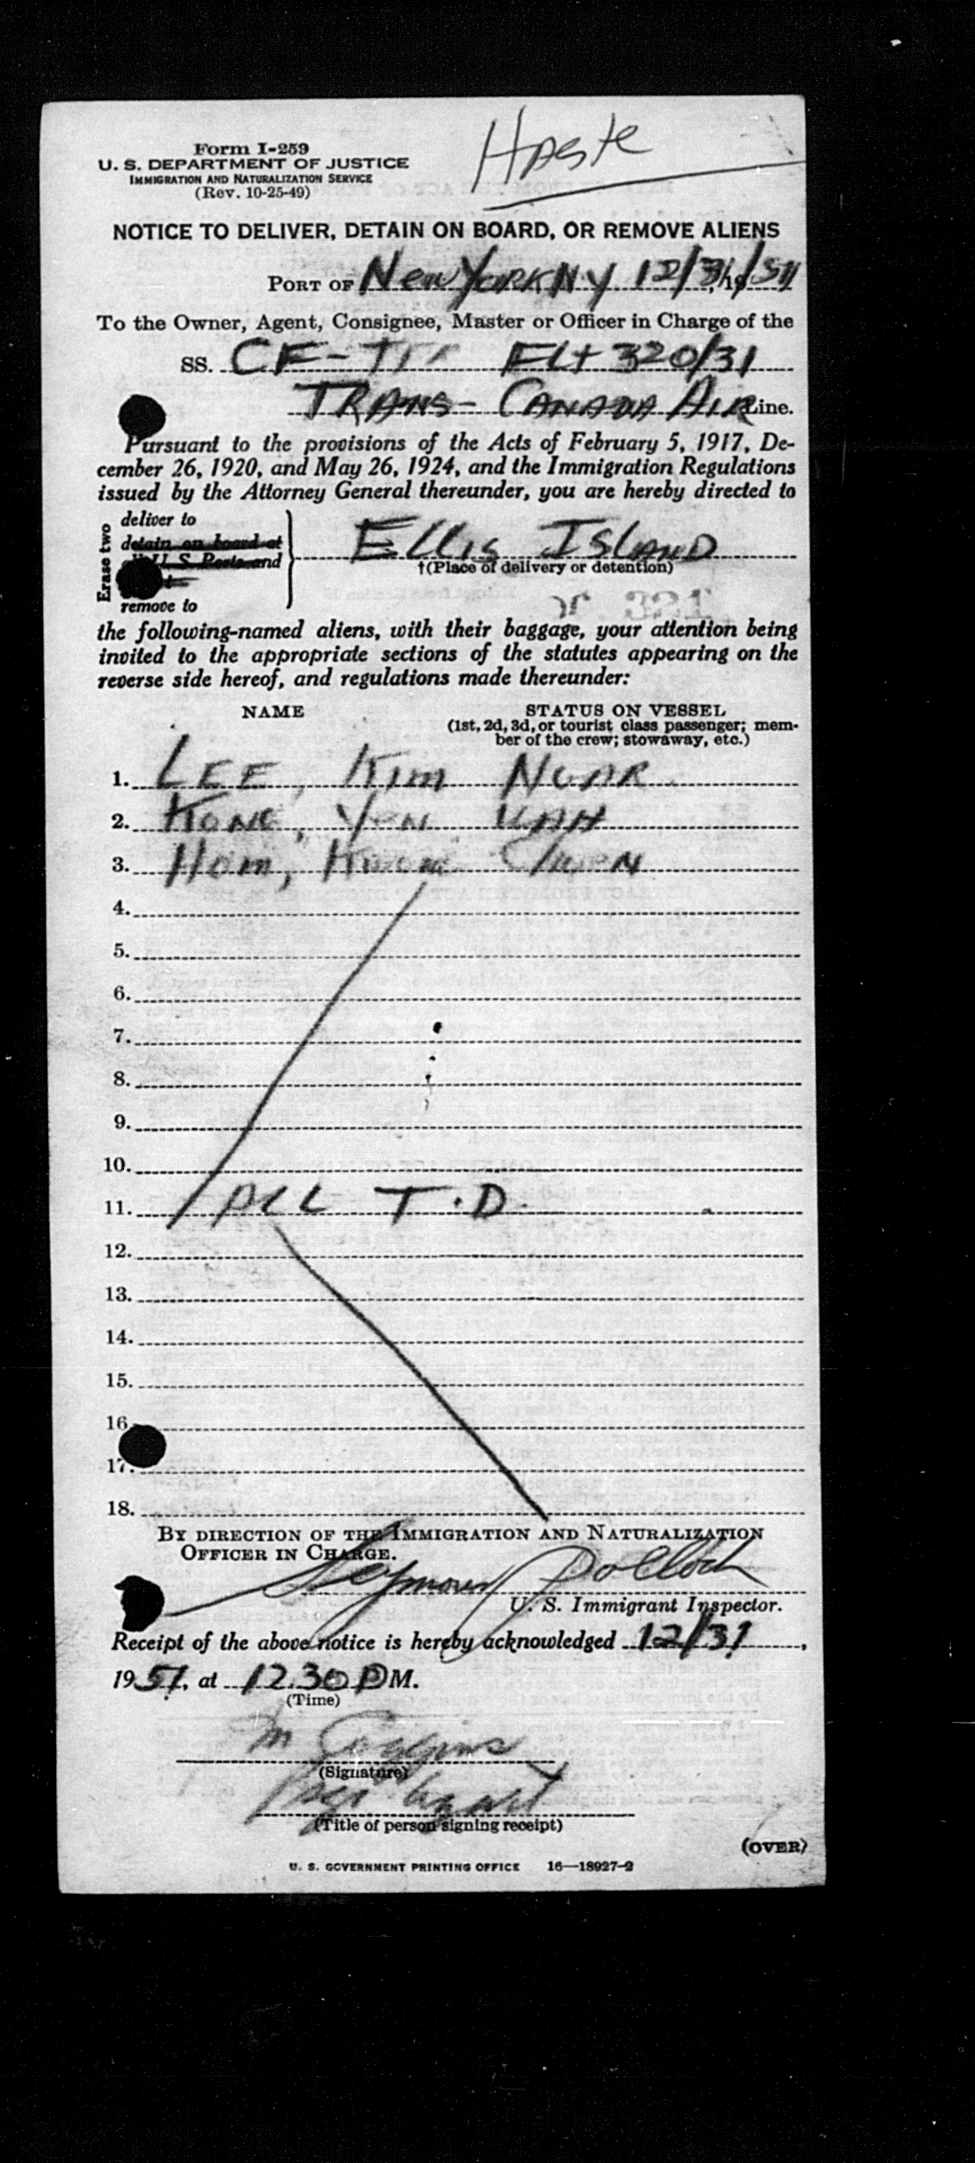 Haste
Form I-259
U. S. DEPARTMENT OF JUSTICE
IMMIGRATION AND NATURALIZATION SERVICE
(Rev. 10-25-49)
NOTICE TO DELIVER, DETAIN ON BOARD, OR REMOVE ALIENS
PORT OF New York NY 12/31, 19/51
To the Owner, Agent, Consignee, Master or Officer in Charge of the
SS. CF-T FLt 320/31
TRANS-CANADA AIR Line.
Pursuant to the provisions of the Acts of February 5, 1917, De-
cember 26, 1920, and May 26, 1924, and the Immigration Regulations
issued by the Attorney General thereunder, you are hereby directed to
Erase two
deliver to
detain on board at
U. S. Ports and
remove to
Ellis ISLAND
†(Place of delivery or detention)
the following-named aliens, with their baggage, your attention being
invited to the appropriate sections of the statutes appearing on the
reverse side hereof, and regulations made thereunder:
NAME STATUS ON VESSEL
(1st, 2d, 3d, or tourist class passenger; mem-
ber of the crew; stowaway, etc.)
1. LEE, Kim NGAR
2. KONG, YEN WAH
3. Hom, Kwow CHUEN
4.
5.
6.
7.
8.
9.
10.
11. ALL T.D.
12.
13.
14.
15.
16.
17.
18.
BY DIRECTION OF THE IMMIGRATION AND NATURALIZATION
OFFICER IN CHARGE.
Seymour Pollock
U. S. Immigrant Inspector.
Receipt of the above notice is hereby acknowledged 12/31,
1951, at 12.30 PM.
(Time)
M Goggins
(Signature)
Psgr Agent
(Title of person signing receipt)
(OVER)
U. S. GOVERNMENT PRINTING OFFICE 16—18927-2